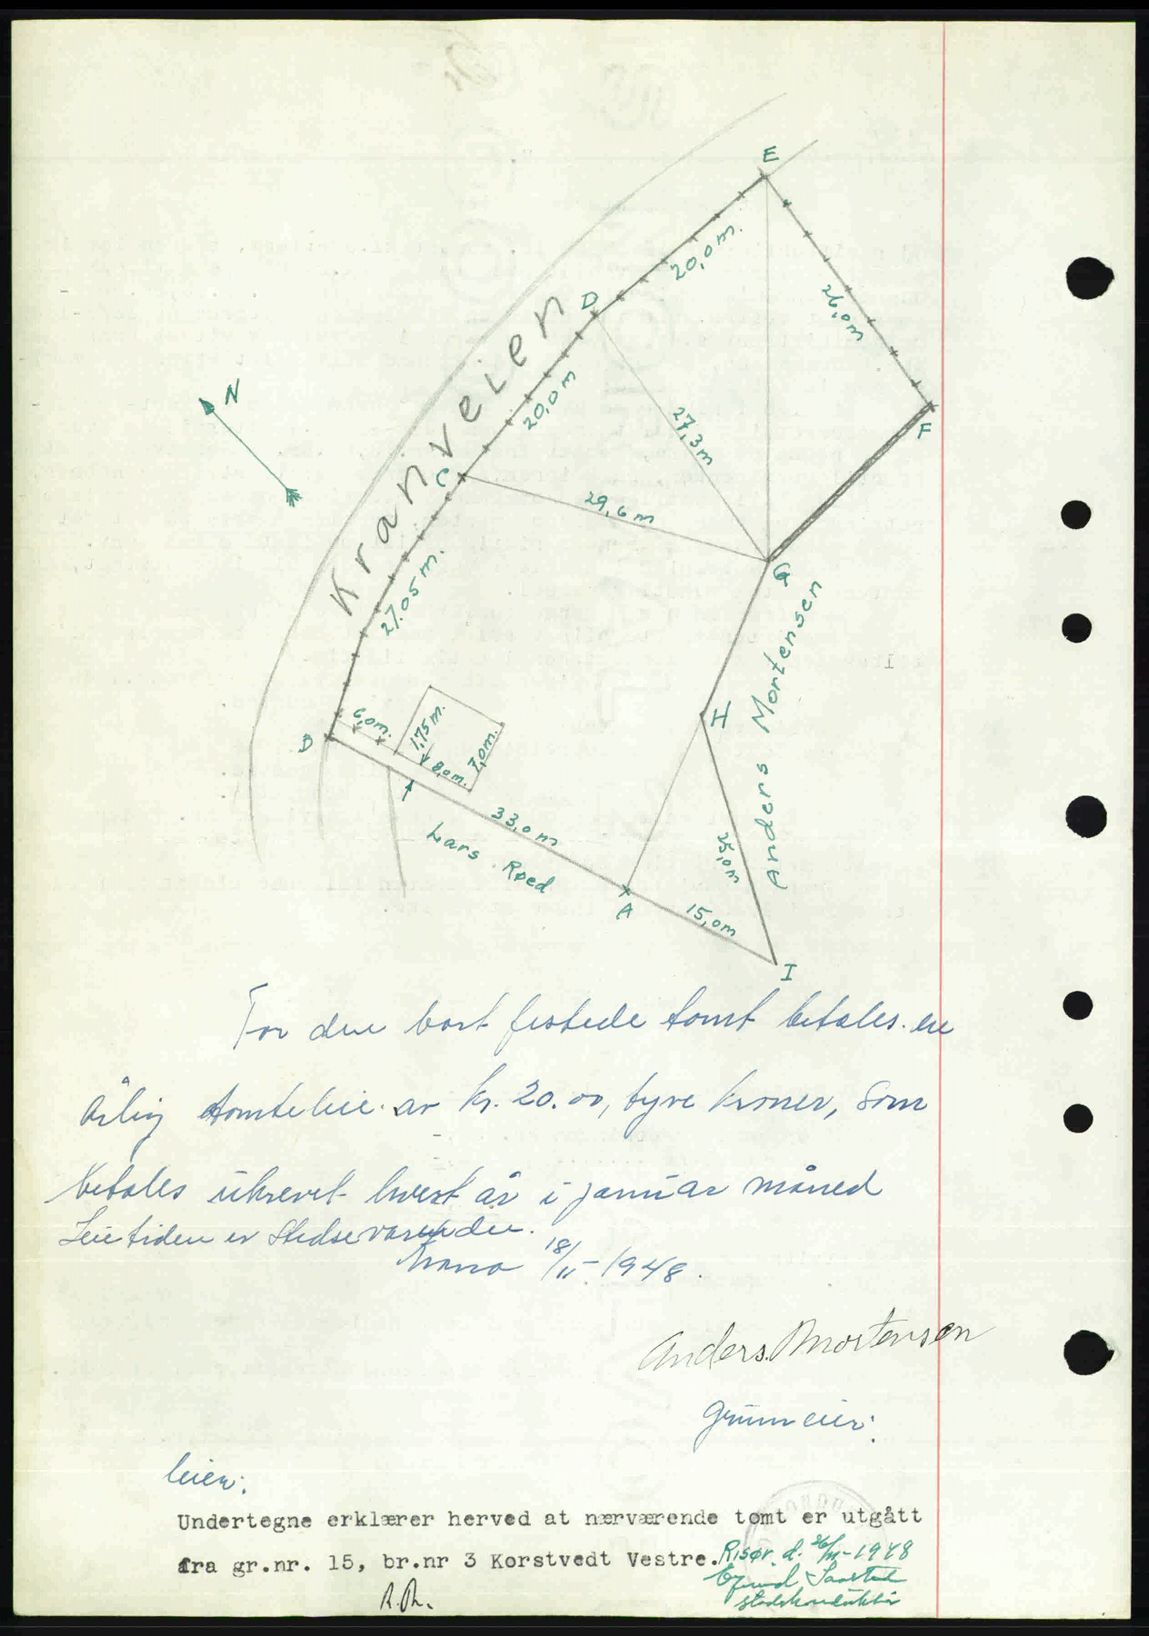 E
20,0 m.
26,0 m
D
N
Kranveien
20,0 m
27,3 m
F
C
29,6 m
G
27.05 m.
Anders Mortensen
H
6,0 m.
1,75 m.
7,0 m.
8,0 m.
B
33,0 m
25,0 m
Lars Røed
A
15,0 m
I
For den bort festede tomt betales en
årlig tomteleie av kr. 20.00, tyve kroner, som
betales ukrevet hvert år i januar måned
Leietiden er stedsevarende.
18/11-1948.
Anders Mortensen
Grunneier:
leier:
Undertegne erklærer herved at nærværende tomt er utgått
fra gr.nr. 15, br.nr 3 Korstvedt Vestre.
Risør, d. 26/11-1948
stadskonduktør